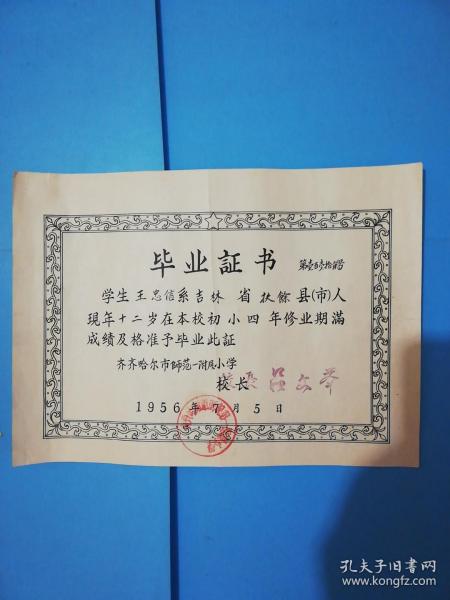 毕业証书
学生王忠信系吉林省扶餘县(市)人
现年十二岁在本校初小四年修业期滿
成绩及格准予毕业此証
齐齐哈尔市师范一附屬小学
校长
1956年7月5日
孔夫子旧书网
www.kongfz.com